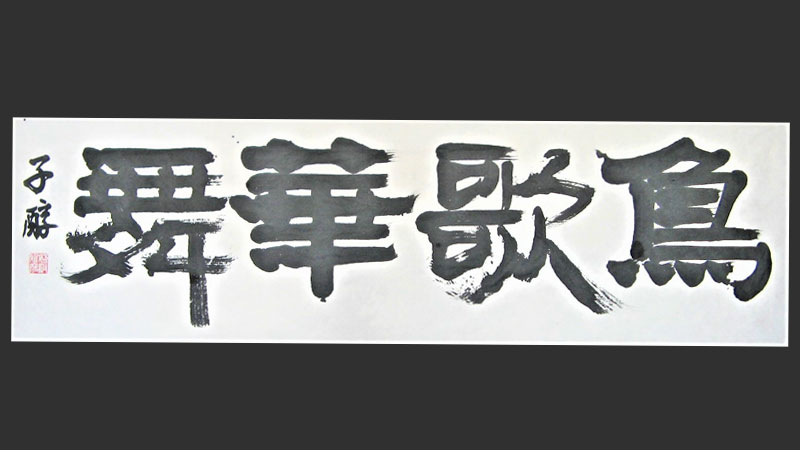 鳥歌華舞
子醇